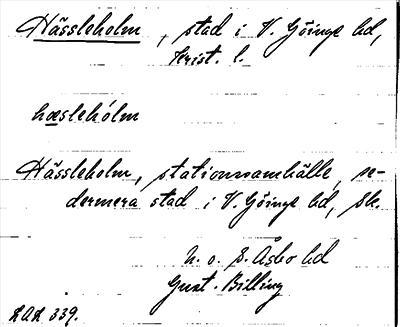 Hässleholm, stad i V. Göinge hd,
Krist. l.
hæslehólm
Hässleholm, stationssamhälle, se-
dermera stad i V. Göinge hd, Sk.
N. o. S. Åsbo hd
Gust. Billing
LAL 339.